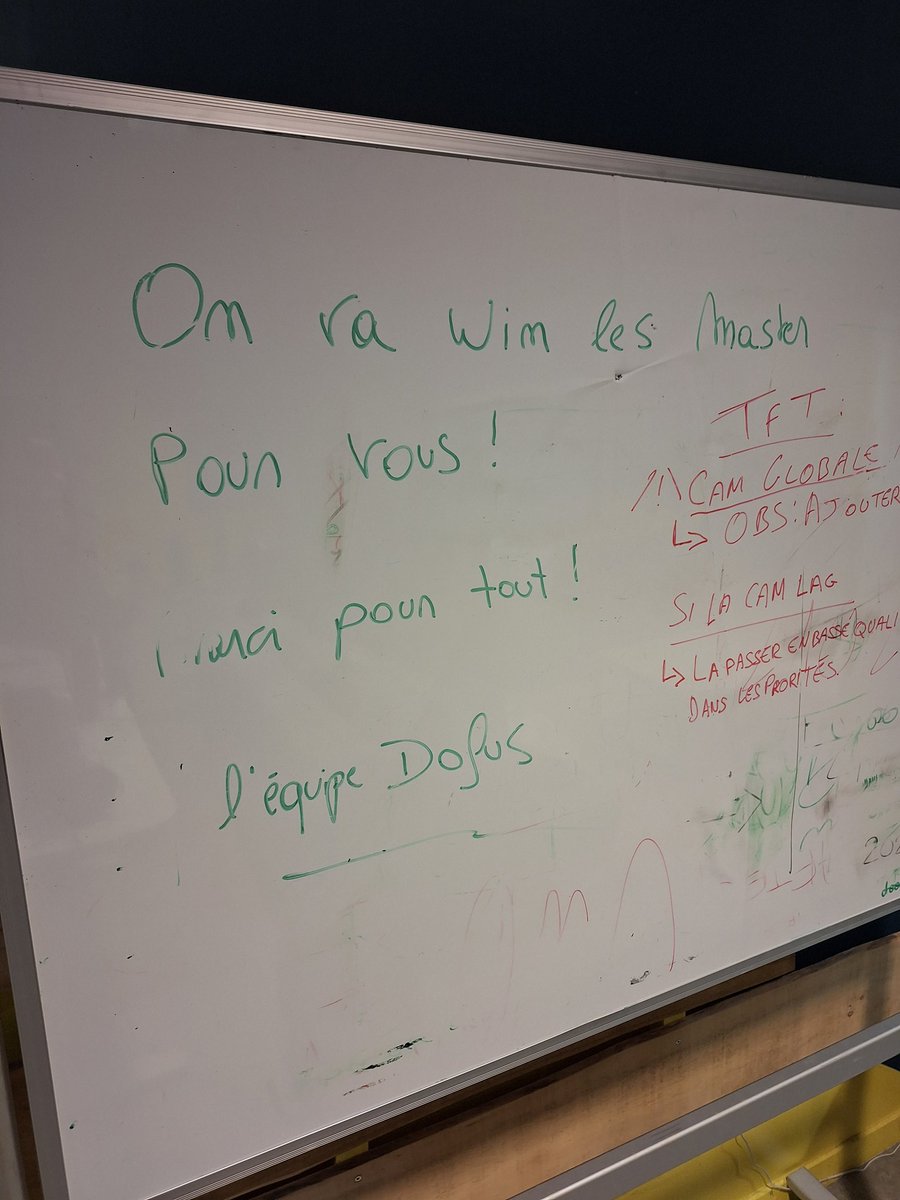 On va Win les Master
Pour vous !
Merci pour tout !
l'équipe Dofus
TFT :
/!\ CAM GLOBALE
↳ OBS : AJOUTER
SI LA CAM LAG
↳ LA PASSER EN BASSE QUALI
DANS LES PRORITÉS.